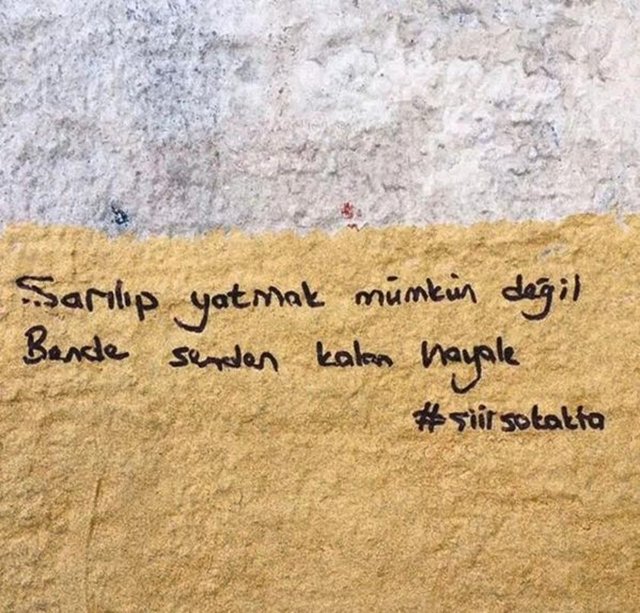 ..Sarılıp yatmak mümkün değil
Bende senden kalan hayale
#şiirsokakta